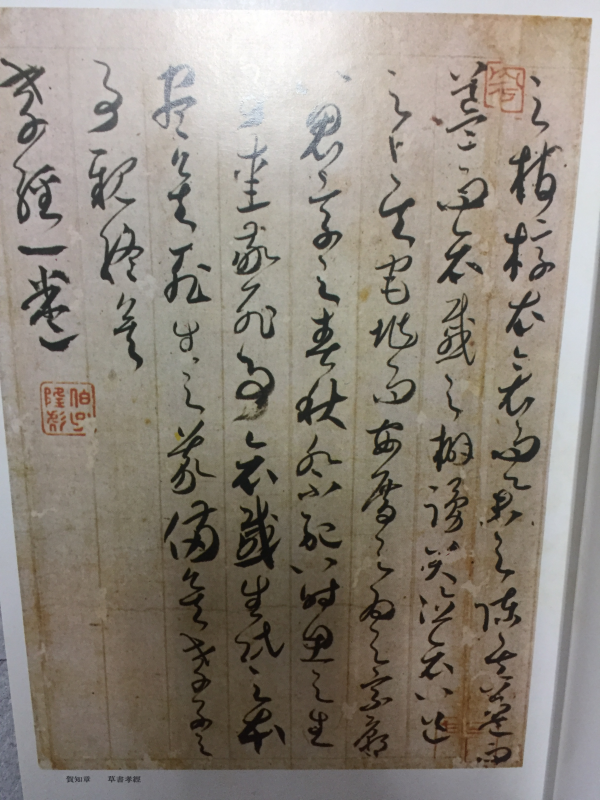 之棺椁衣衾而舉之陳其簠
簋而哀慼之擗踴哭泣哀以送
之卜其宅兆而安厝之為之宗廟
以鬼享之春秋祭祀以時思之生
事愛敬死事哀慼生民之本
盡矣死生之義備矣孝子之
事親終矣
孝經一卷
賀知章 草書孝經